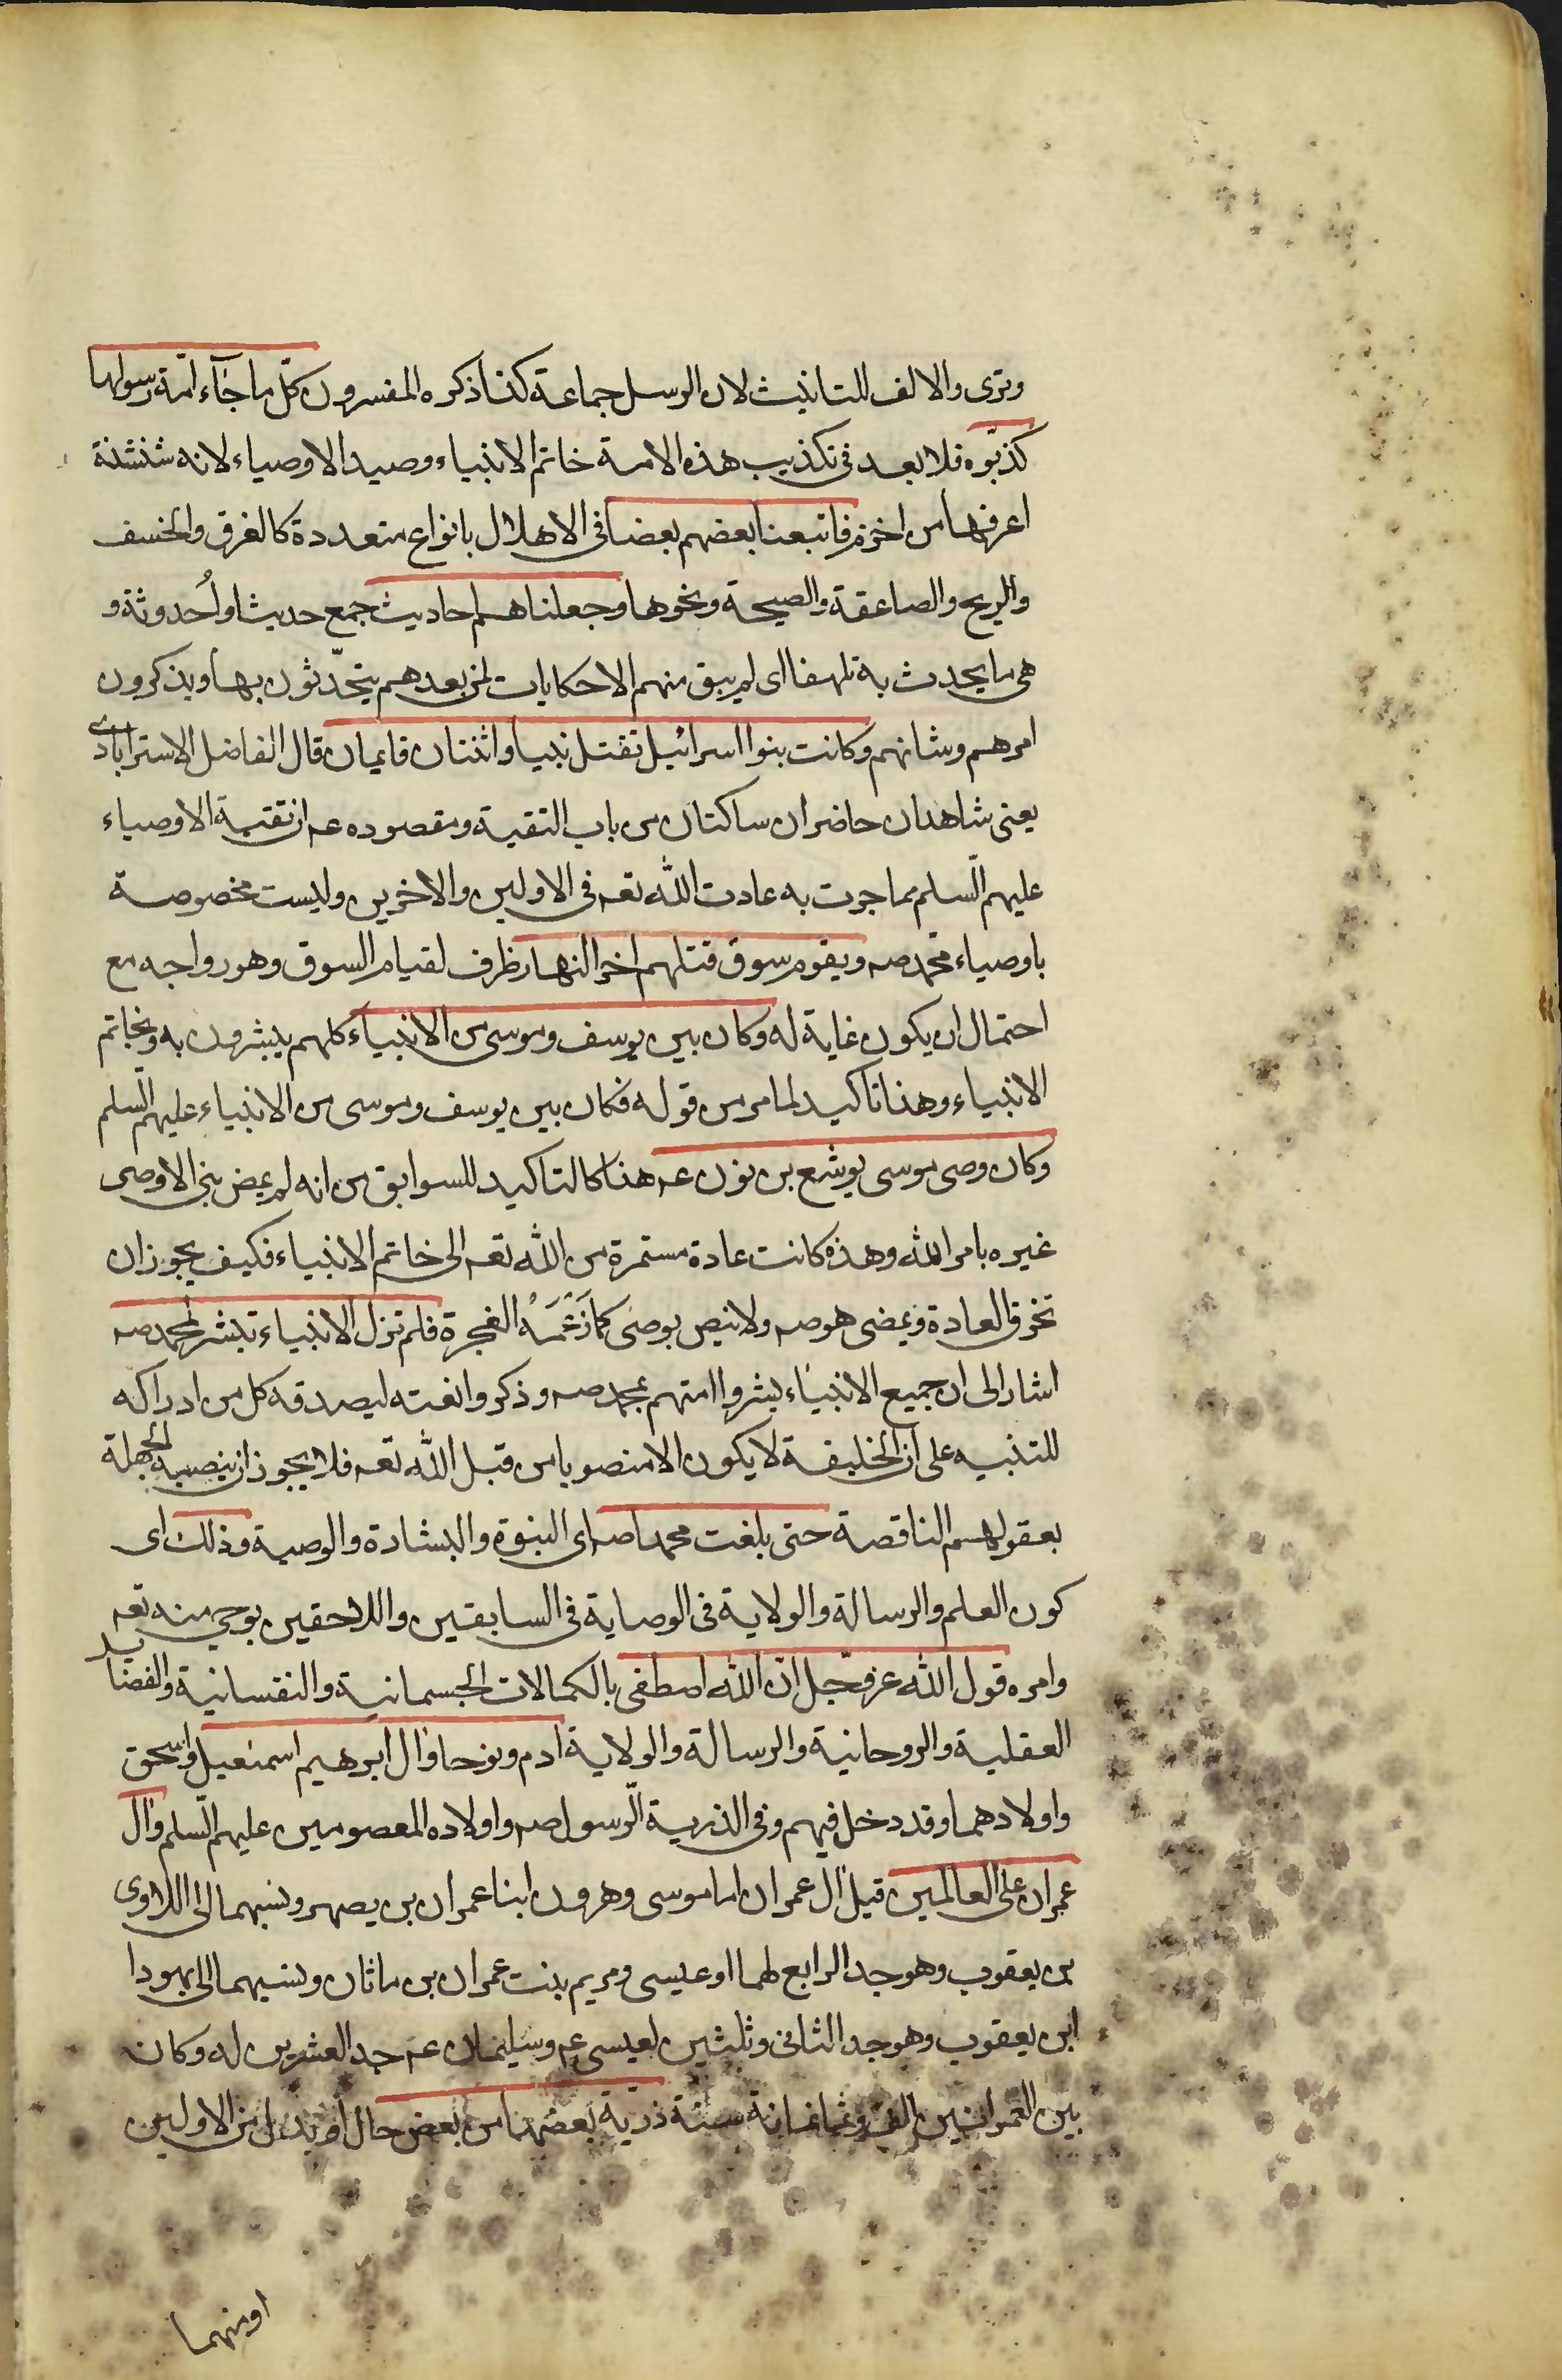 وترى والالف للتانيث لان الرسل جماعة كذا ذكره المفسرون كلّ ما جآء امّة رسولها
كذّبوه فلا بعد فى تكذيب هذه الامة خاتم الانبياء وصيد الاوصياء لانه شنشنة
اعرفها من اخزم فاتبعنا بعضهم بعضا فى الاهلاك بانواع متعددة كالغرق والخسف
والريح والصاعقة والصيحة ونحوها وجعلناهم احاديث جمع حديث او اُحدوثة و
هى ما يحدث به تلهفا اى لم يبق منهم الا حكايات لمن بعدهم يتحّدثون بها ويذكرون
امرهم وشانهم وكانت بنوا اسرائيل تقتل نبيا واثنان قايمان قال الفاضل الاسترابادى
يعنى شاهدان حاضران ساكتان من باب التقية ومقصوده عم ان تقية الاوصياء
عليهم السّلم مما جرت به عادت الله تعه فى الاولين والاخرين وليست مخصوصة
باوصياء محمد صه ويقوم سوق قتلهم اخر النهار ظرف لقيام السوق وهو رواجه مع
احتمال ان يكون غاية له وكان بين يوسف وموسى من الانبياء كلهم يبشرون به وبخاتم
الانبياء وهذا تاكيد لما مر من قوله فكان بين يوسف وموسى من الانبياء عليهم السّلم
وكان وصى موسى يوشع بن نون عم هذا كالتاكيد للسوابق من انه لم يمض نبى الا وصى
غيره بامر الله وهذه كانت عادة مستمرة من الله تعه الى خاتم الانبياء فكيف يجوز ان
تخرق العادة ويمضى هو صه ولا ينص بوصى كما زَعَمَهُ الفجرة فلم تزل الانبياء تبشر لمحمد صه
اشار الى ان جميع الانبياء بشروا امتهم بمحمد صه وذكروا نعته ليصدقه كل من ادراكه
للتنبيه على ان الخليفة لا يكون الا منصوبا من قبل الله تعه فلا يجوز ان ينصبه الجهلة
بعقولهم الناقصة حتى بلغت محمدا صه اى النبوة والبشارة والوصية وذلك اى
كون العلم والرسالة والولاية فى الوصاية فى السابقين واللاحقين بوحى منه تعه
وامره قول الله عزوجّل انّ الله اصطفى بالكمالات الجسمانية والنفسانية والفضايل
العقلية والروحانية والرسالة والولاية ادم ونوحا وال ابرهيم اسمعيل واسحق
واولادهما وقد دخل فيهم وفى الذرية الرّسول صه واولاده المعصومين عليهم السّلم وال
عمران على العالمين قيل ال عمران اما موسى وهرون ابنا عمران بن يصهر ونسبهما الى اللاوى
بن يعقوب وهو جد الرابع لهما او عيسى ومريم بنت عمران بن ماثان ونسبهما الى يهودا
ابن يعقوب وهو جد الثانى وثلثين لعيسى عم وسليمان عم جد العشرين له وكان
بين العمرانين الف وثمانمائة سنة ذرية بعضها من بعض حال او بدل من الاولين
اومنهما